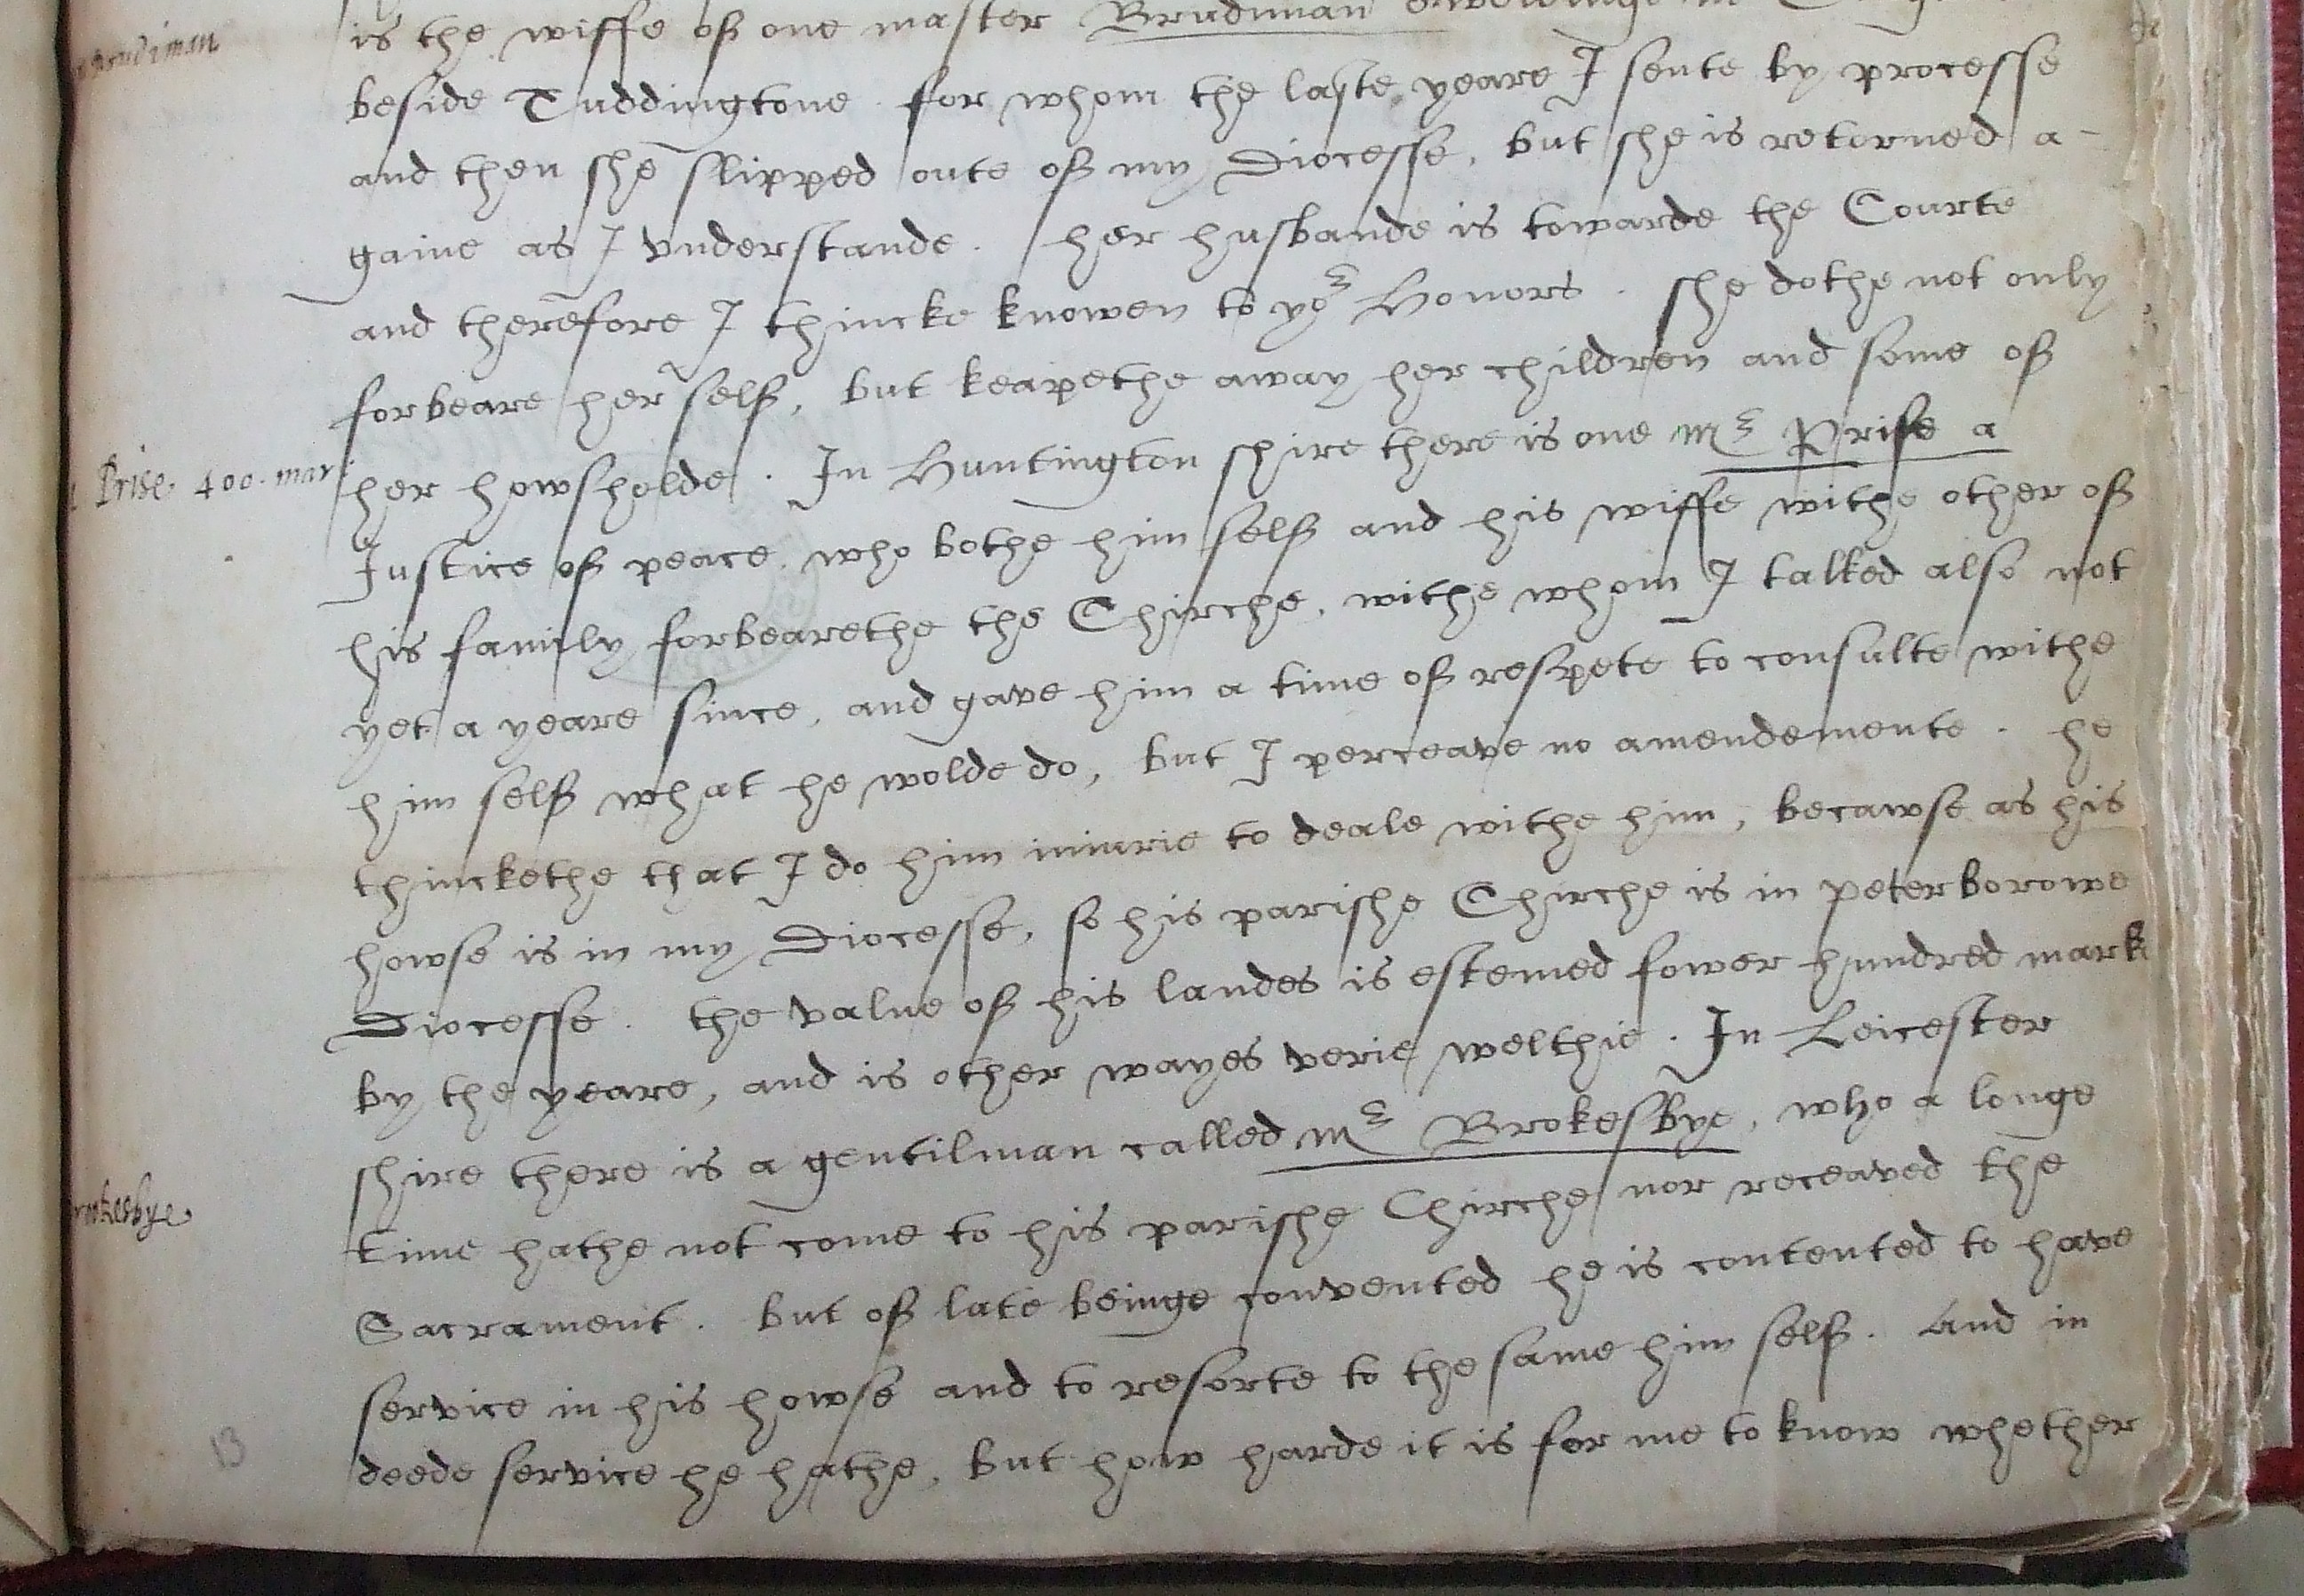 is the wiffe of one master Brudiman dwellinge in
beside Tuddingtone for whom the laste yeare I sente by processe
and then she slipped oute of my Diocesse, but she is retorned a-
gaine as I vnderstande. her husbande is towarde the Courte
and therefore I thincke knowen to yor Honors. she dothe not only
forbeare her self, but keapethe away her children and some of
her howsholde. In Huntington shire there is one mr Prise a
Prise. 400. mar
Justice of peace, who bothe him self and his wiffe withe other of
his family forbearethe the Chirche, withe whom I talked also not
yet a yeare since, and gave him a time of respete to consulte withe
him self what he wolde do, but I perceave no amendemente. he
thinckethe that I do him iniurie to deale withe him, becawse as his
howse is in my Diocesse, so his parishe Chirche is in peterborowe
Diocesse. the value of his landes is estemed fower hundred mark
by the yeare, and is other wayes verie welthie. In Leicester
shire there is a gentilman called mr Brokesbye, who a longe
time hathe not come to his parishe Chirche nor receaved the
rookesbye
Sacrament. but of late beinge convented he is contented to have
service in his howse and to resorte to the same him self. And in
deede service he hathe, but how harde it is for me to know whether
13